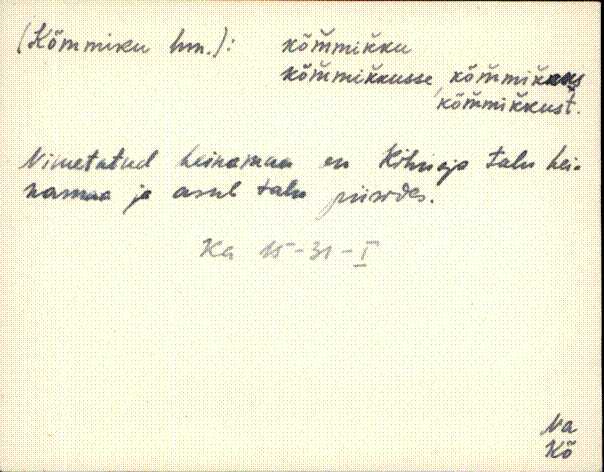 (Kõmmiku hm.): kõm̆mik̆ku
kõm̆mik̆kusse, kõm̆mik̆kus
kõm̆mik̆kust.
Nimetatud heinamaa on Kihuoja talu hei-
namaa ja asub talu piirides.
Ka 15-31-I
Va
Kõ